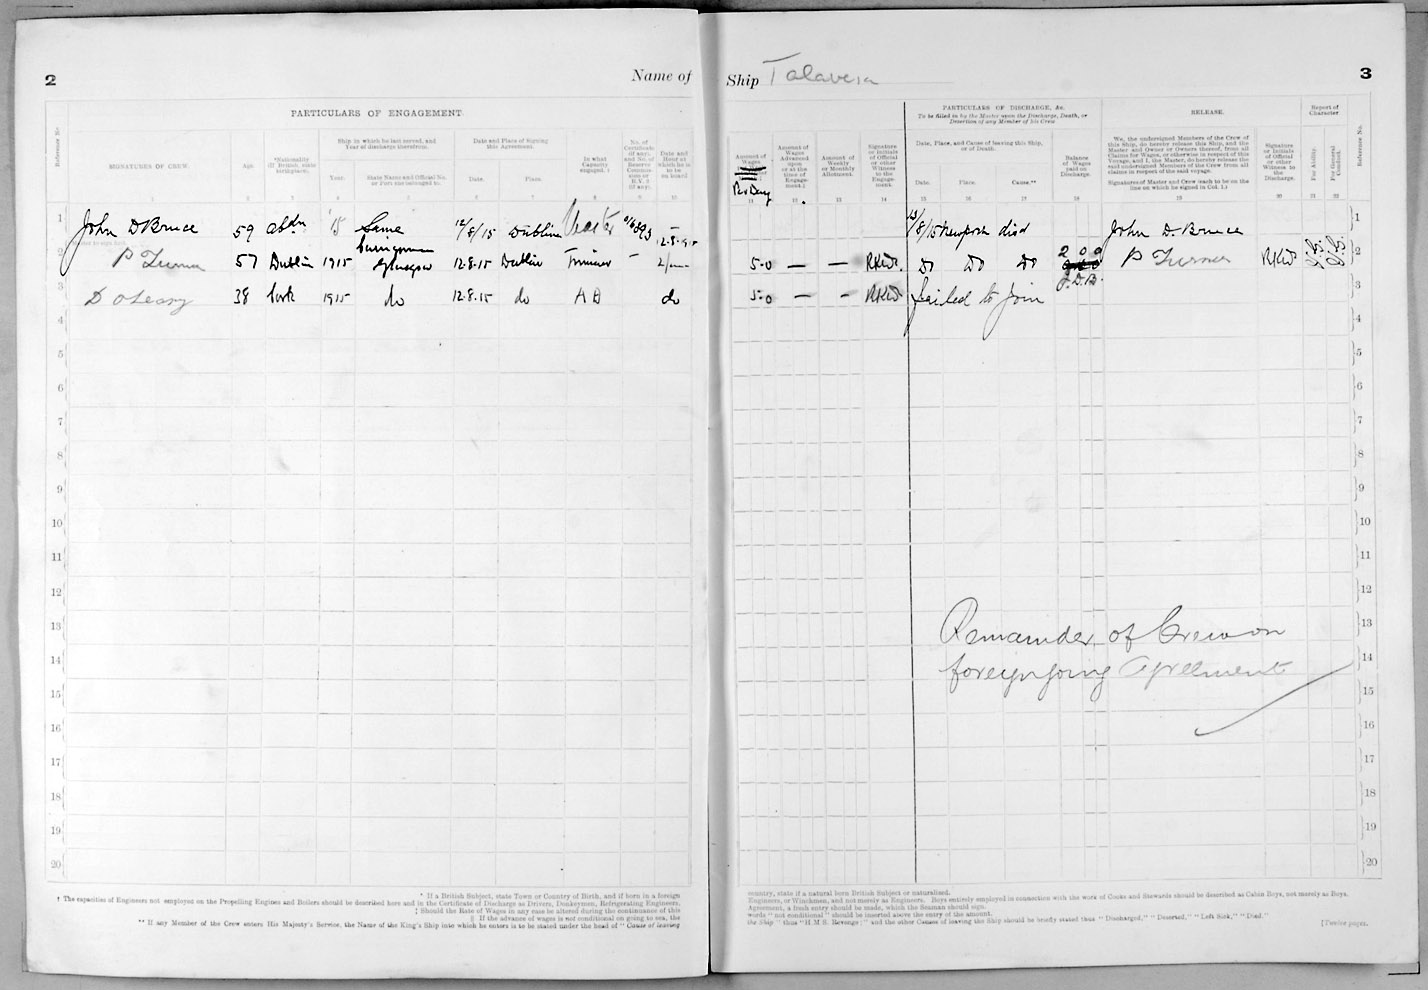 2
Name of
Ship Talavera
3
PARTICULARS OF ENGAGEMENT.
PARTICULARS OF DISCHARGE, &c.
To be filled in by the Master upon the Discharge, Death, or
Desertion of any Member of his Crew
RELEASE.
Report of
Character
Reference No.
SIGNATURES OF CREW.
Age.
*Nationality
(If British, state
birthplace).
Ship in which he last served, and
Year of discharge therefrom.
Year.
State Name and Official No.
or Port she belonged to.
Date and Place of Signing
this Agreement.
Date.
Place.
In what
Capacity
engaged. †
No. of
Certificate
(if any),
and No. of
Reserve
Commis-
sion or
R.V. 2
(if any).
Date and
Hour at
which he is
to be
on board
Amount of
Wages
Per Day
Amount of
Wages
Advanced
upon
or at the
time of
Engage-
ment.
Amount of
Weekly
or Monthly
Allotment.
Signature
or Initials
of Official
or other
Witness
to the
Engage-
ment.
Date, Place, and Cause of leaving this Ship,
or of Death.
Date.
Place.
Cause.**
Balance
of Wages
paid on
Discharge.
We, the undersigned Members of the Crew of
this Ship, do hereby release this Ship, and the
Master and Owner or Owners thereof, from all
Claims for Wages, or otherwise in respect of this
Voyage, and I, the Master, do hereby release the
said undersigned Members of the Crew from all
claims in respect of the said voyage.
Signatures of Master and Crew (each to be on the
line on which he signed in Col. 1.)
Signature
or Initials
of Official
or other
Witness to
the
Discharge.
For Ability.
For General
Conduct.
Reference No.
1 2 3 4 5 6 7 8 9 10 11 12 13 14 15 16 17 18 19 20 21 22
1 John D Bruce 59 Abdn '15 Same 12/8/15 Dublin Master 12.8.15 13/8/15 Newport disd John D. Bruce 1
Master to sign first.
2 P Turner 57 Dublin 1915 Glasgow 12.8.15 Dublin Trimmer – 5-0 — — RKW. Do Do Do 2 0 0 P Turner RKW 2
J.D.B.
3 D O'Leary 38 Cork 1915 do 12.8.15 do AB do 5-0 — — RKW failed to join 3
4 4
5 5
6 6
7 7
8 8
9 9
10 10
11 11
12 12
13 Remainder of Crew on 13
14 foreign going Agreement 14
15 15
16 16
17 17
18 18
19 19
20 20
* If a British Subject, state Town or Country of Birth, and if born in a foreign
country, state if a natural born British Subject or naturalised.
† The capacities of Engineers not employed on the Propelling Engines and Boilers should be described here and in the Certificate of Discharge as Drivers, Donkeymen, Refrigerating Engineers,
Engineers, or Winchmen, and not merely as Engineers. Boys entirely employed in connection with the work of Cooks and Stewards should be described as Cabin Boys, not merely as Boys.
‡ Should the Rate of Wages in any case be altered during the continuance of this
Agreement, a fresh entry should be made, which the Seaman should sign.
|| If the advance of wages is not conditional on going to sea, the
words "not conditional" should be inserted above the entry of the amount.
** If any Member of the Crew enters His Majesty's Service, the Name of the King's Ship into which he enters is to be stated under the head of "Cause of leaving
the Ship" thus "H.M.S. Revenge;" and the other Causes of leaving the Ship should be briefly stated thus "Discharged," "Deserted," "Left Sick," "Died."
[Twelve pages.